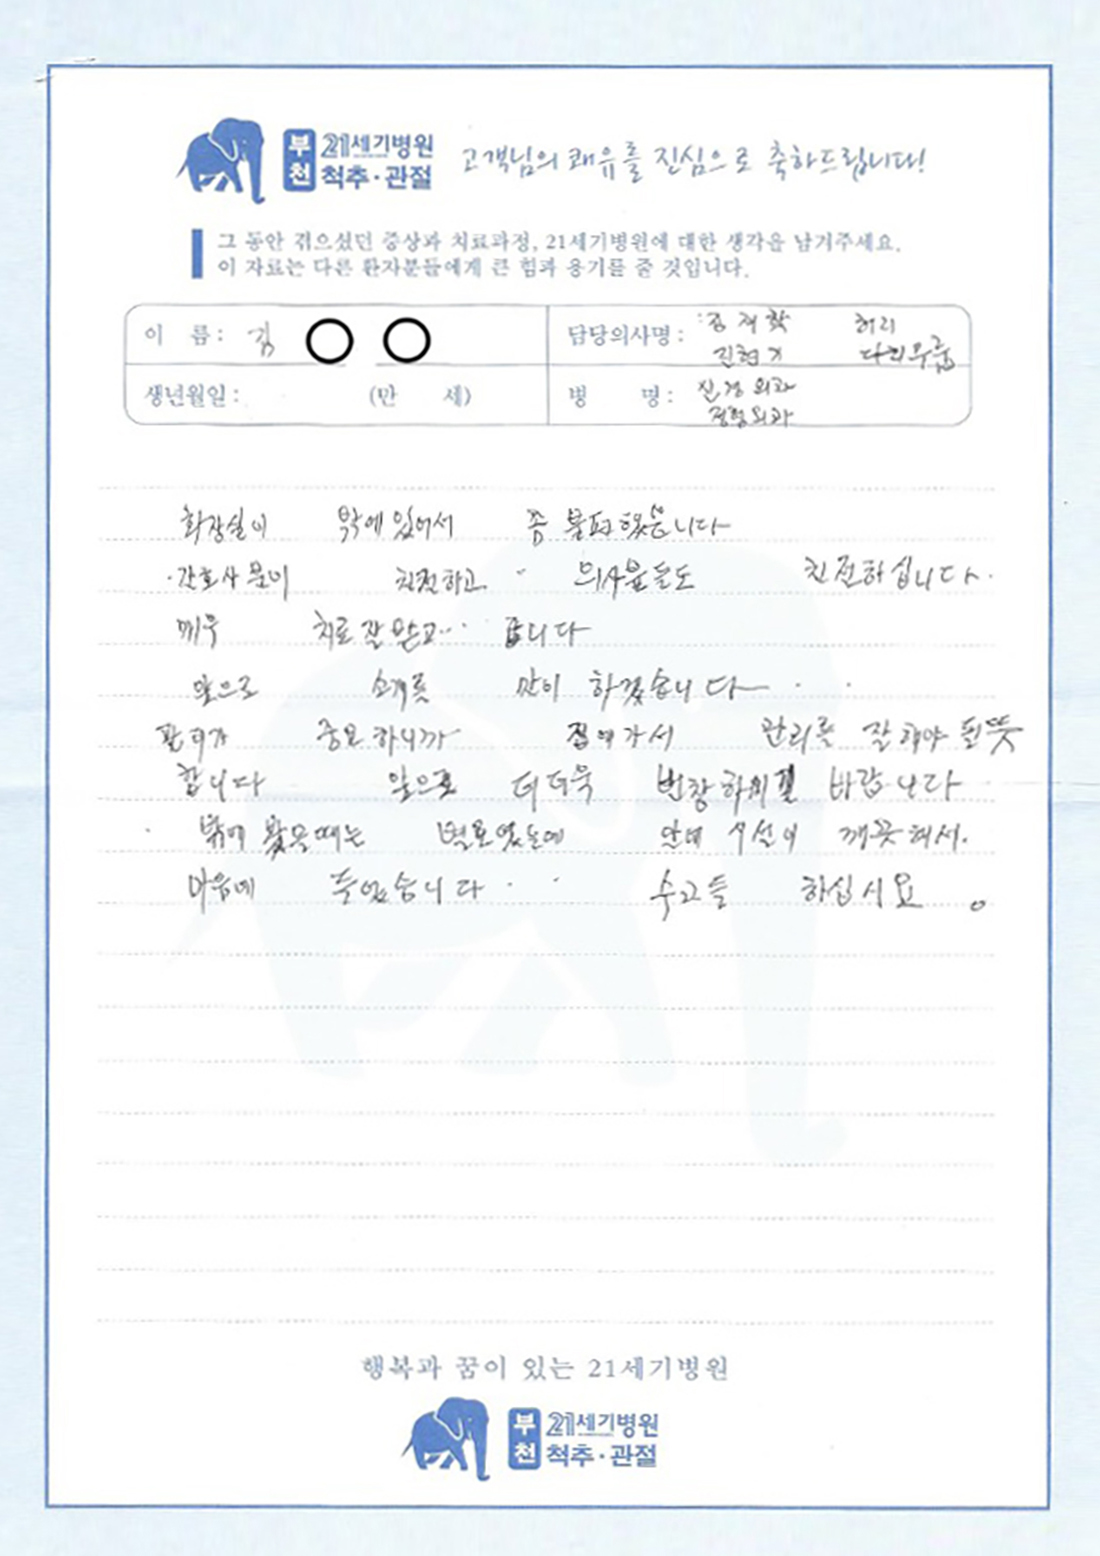 부천 21세기병원 척추·관절 고객님의 쾌유를 진심으로 축하드립니다!
그 동안 겪으셨던 증상과 치료과정, 21세기병원에 대한 생각을 남겨주세요.
이 자료는 다른 환자분들에게 큰 힘과 용기를 줄 것입니다.
이 름: 김 ○ ○
담당의사명: 허리
생년월일: (만 세)
병 명: 신경외과
정형외과
화장실이 밖에 있어서 좀 불편했읍니다
간호사분이 친절하고 의사분들도 친절하십니다.
치료 잘 받고 갑니다
앞으로 소개 많이 하겠습니다
중요하니까 집에가서 관리를 잘해야 될뜻
합니다 앞으로 더더욱 번창하시길 바랍니다
밖에 봤을때는 별로였는데 안에 시설이 깨끗해서.
마음에 들었습니다 수고들 하십시요
행복과 꿈이 있는 21세기병원
부천 21세기병원 척추·관절